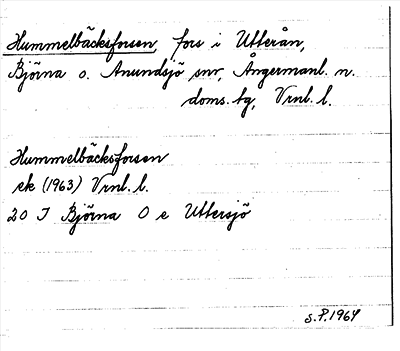 Hummelbäcksforsen, fors i Utterån,
Björna o. Anundsjö snr, Ångermanl. n.
doms. tg, Vrnl. l.
Hummelbäcksforsen
ek (1963) Vrnl. l.
20 J Björna O e Uttersjö
S.P. 1964